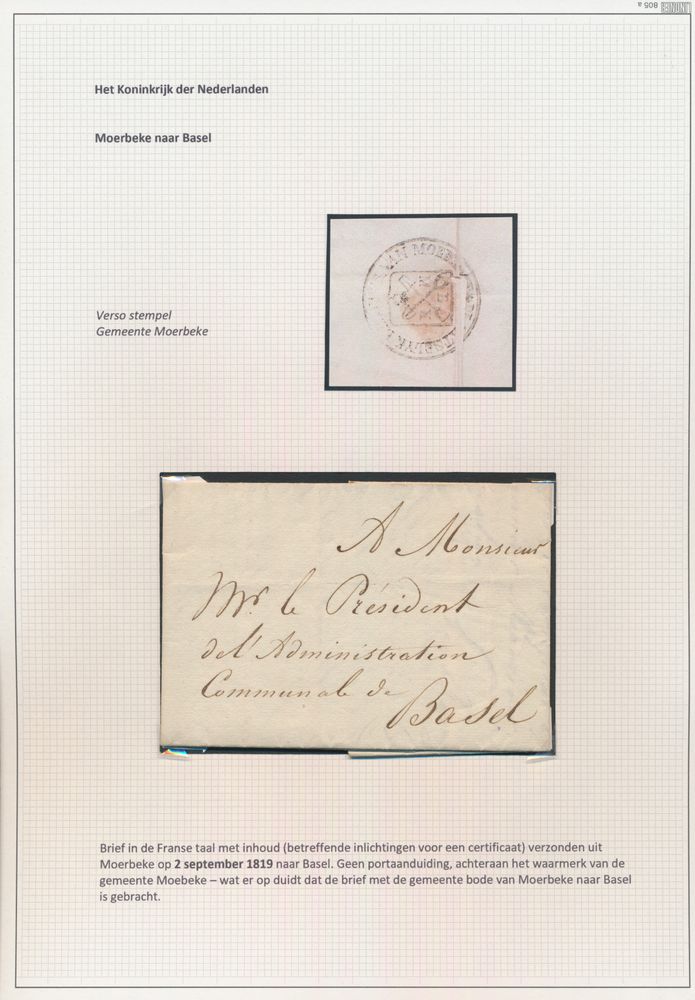 LINDNER 805 a
Het Koninkrijk der Nederlanden
Moerbeke naar Basel
Verso stempel
Gemeente Moerbeke
A Monsieur
Mr. le Président
de l'Administration
Communale de
Basel
Brief in de Franse taal met inhoud (betreffende inlichtingen voor een certificaat) verzonden uit
Moerbeke op 2 september 1819 naar Basel. Geen portaanduiding, achteraan het waarmerk van de
gemeente Moebeke – wat er op duidt dat de brief met de gemeente bode van Moerbeke naar Basel
is gebracht.